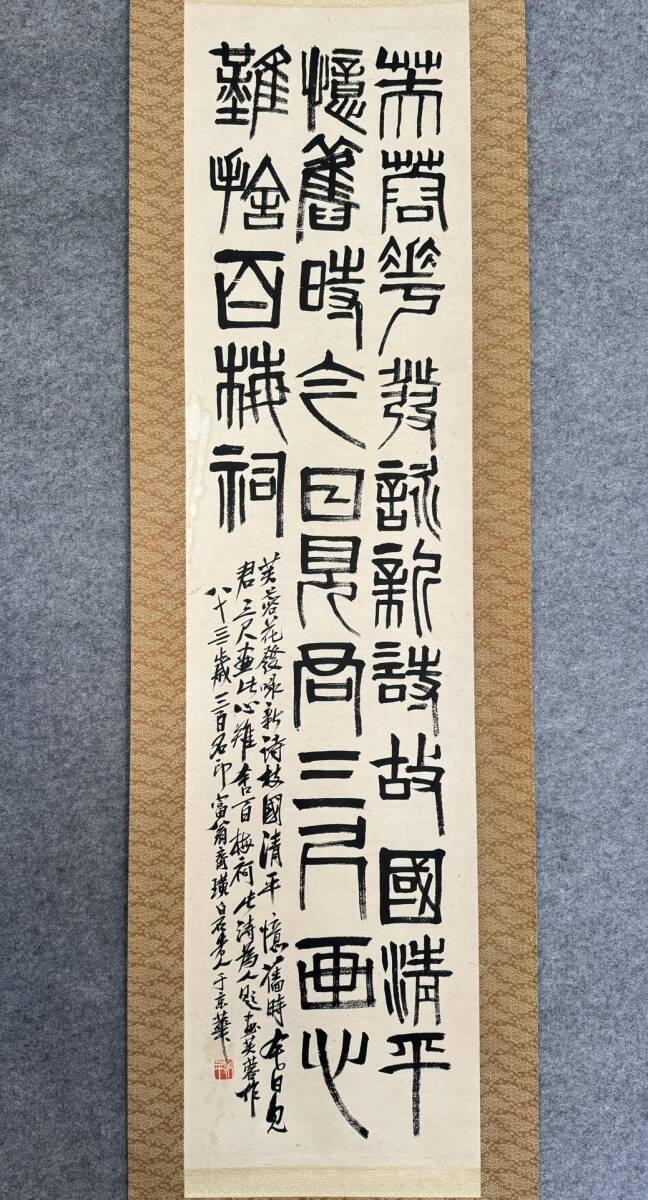 芙蓉花發詠新詩故國清平
憶舊時今日見君三尺画心
難捨百梅祠
芙蓉花發詠新詩故國清平憶舊時今日見
君三尺畫此心難舍百梅祠此詩為人題畫芙蓉作
八十三歲三百石印富翁齊璜白石老人于京華